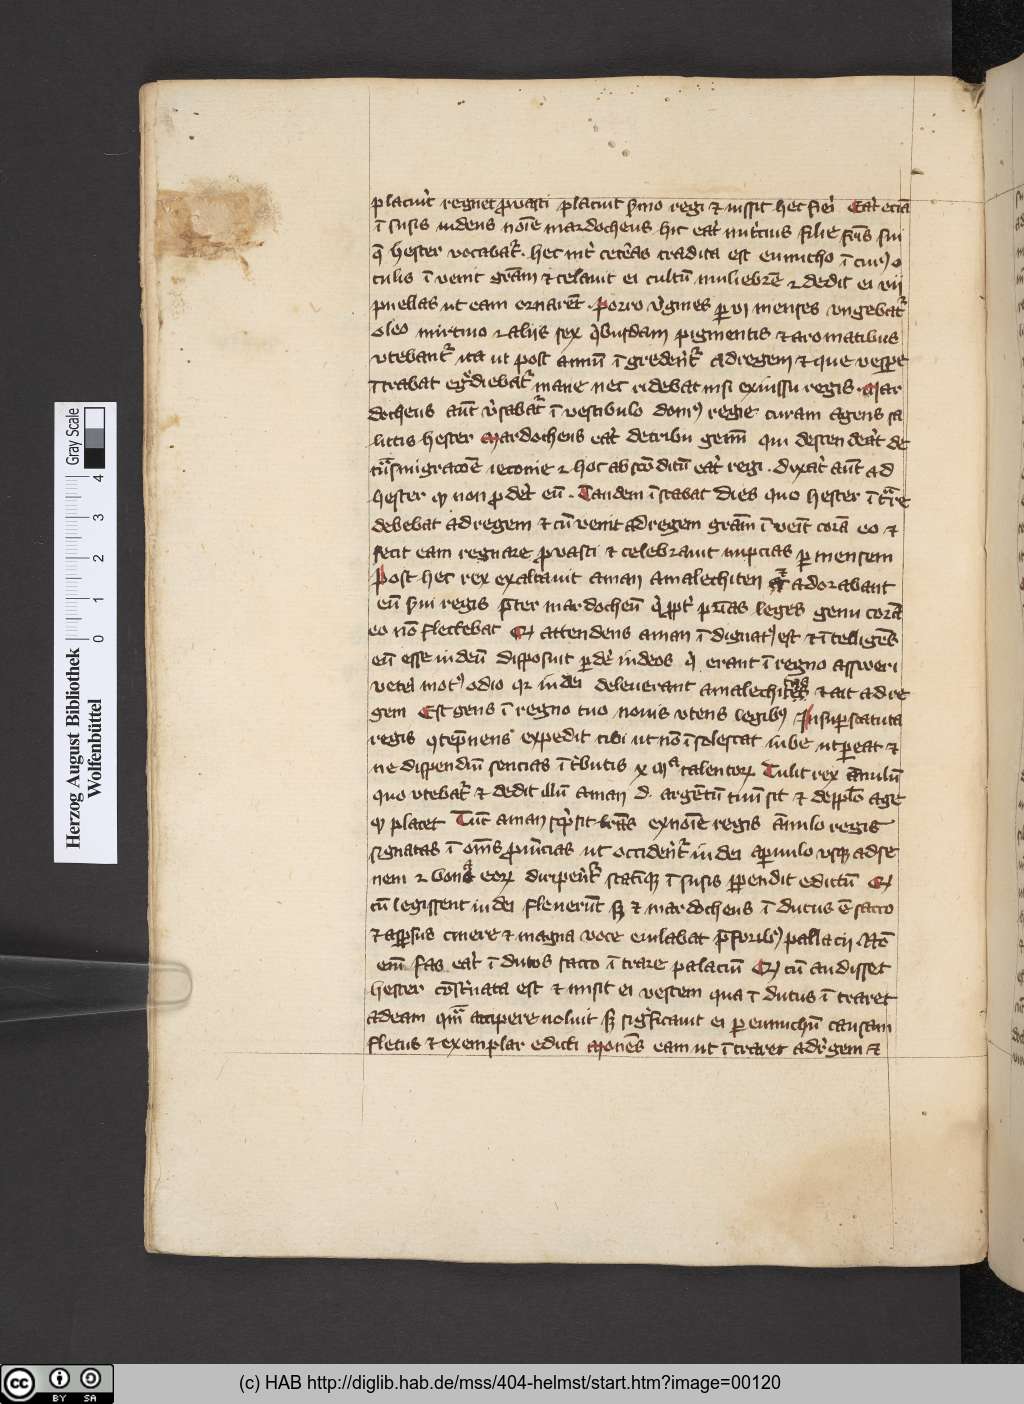 placuit regnet pro vasti placuit sermo regi et iussit hec fieri Erat eciam
in susis iudeus noīe mardocheus hic erat nutricius filie fratris sui
que hester vocabatur. hec inter ceteras tradita est eunucho in cuius o
culis inuenit gram et celauit ei cultū muliebrē et dedit ei vii
puellas ut eam ornarēt. Porro virgines per vi menses vngebatur
oleo mirtino et aliis sex quibusdam pigmentis et aromatibus
vtebantur ita ut post annū ingrederentur ad regem et que vespere
intrabat egrediebatur mane nec ridebat nisi ex iussu regis. Mar
docheus aūt versabatur in vestibulo domus regie curam agens sa
lutis hester Mardocheus erat de tribu gemini qui descenderat de
trāsmigracōe ieconie et hoc absconditū erat regi. dixerat aūt ad
hester quod non proderet eū. Tandem instabat dies quo hester intrare
debebat ad regem et cū venit ad regem grām inuenit corā eo et
fecit eam regnare pro vasti et celebrauit nupcias per mensem
Post hec rex exaltauit aman amalechiten et adorabant
eū serui regis preter mardocheū qui propter patrias leges genu corā
eo nō flectebat Quod attendens aman indignatus est et intelligēs
eū esse iudeū disposuit perdere iudeos qui erant in regno assweri
veteri motus odio quia iudei deleuerant amalechitas et ait ad re
gem Est gens in regno tuo nouis vtens legibus Insuper statuta
regis contēpnens expedit tibi ut nō insolescat iube ut pereat et
ne dispendiū sencias in tributis x ma talentorum Tulit rex anulū
quo vtebatur et dedit illū aman d. argētū tuū sit et de pplo age
quod placet Tūc aman scripsit lrās ex noīe regis anulo regis
signatas in oms prouincias ut occiderentur iudei a paruulo vsque ad se
nem et bona eorum diriperentur statimque in susis perpendit edictū Quod
cū legissent iudei fleuerūt sed et mardocheus indutus ē sacco
et aspersus cinere et magna voce eiulabat pre foribus pallacii. Nō
enī fas erat indutos sacco intrare palaciū Quod cū audisset
hester cōsternata est et misit ei vestem qua indutus intraret
ad eam quam accipere noluit sed significauit ei per eunuchū causam
fletus et exemplar edicti Monēs eam ut intraret ad regem et
Herzog August Bibliothek
Wolfenbüttel
0 1 2 3 4
Gray Scale
cc BY SA
(c) HAB http://diglib.hab.de/mss/404-helmst/start.htm?image=00120